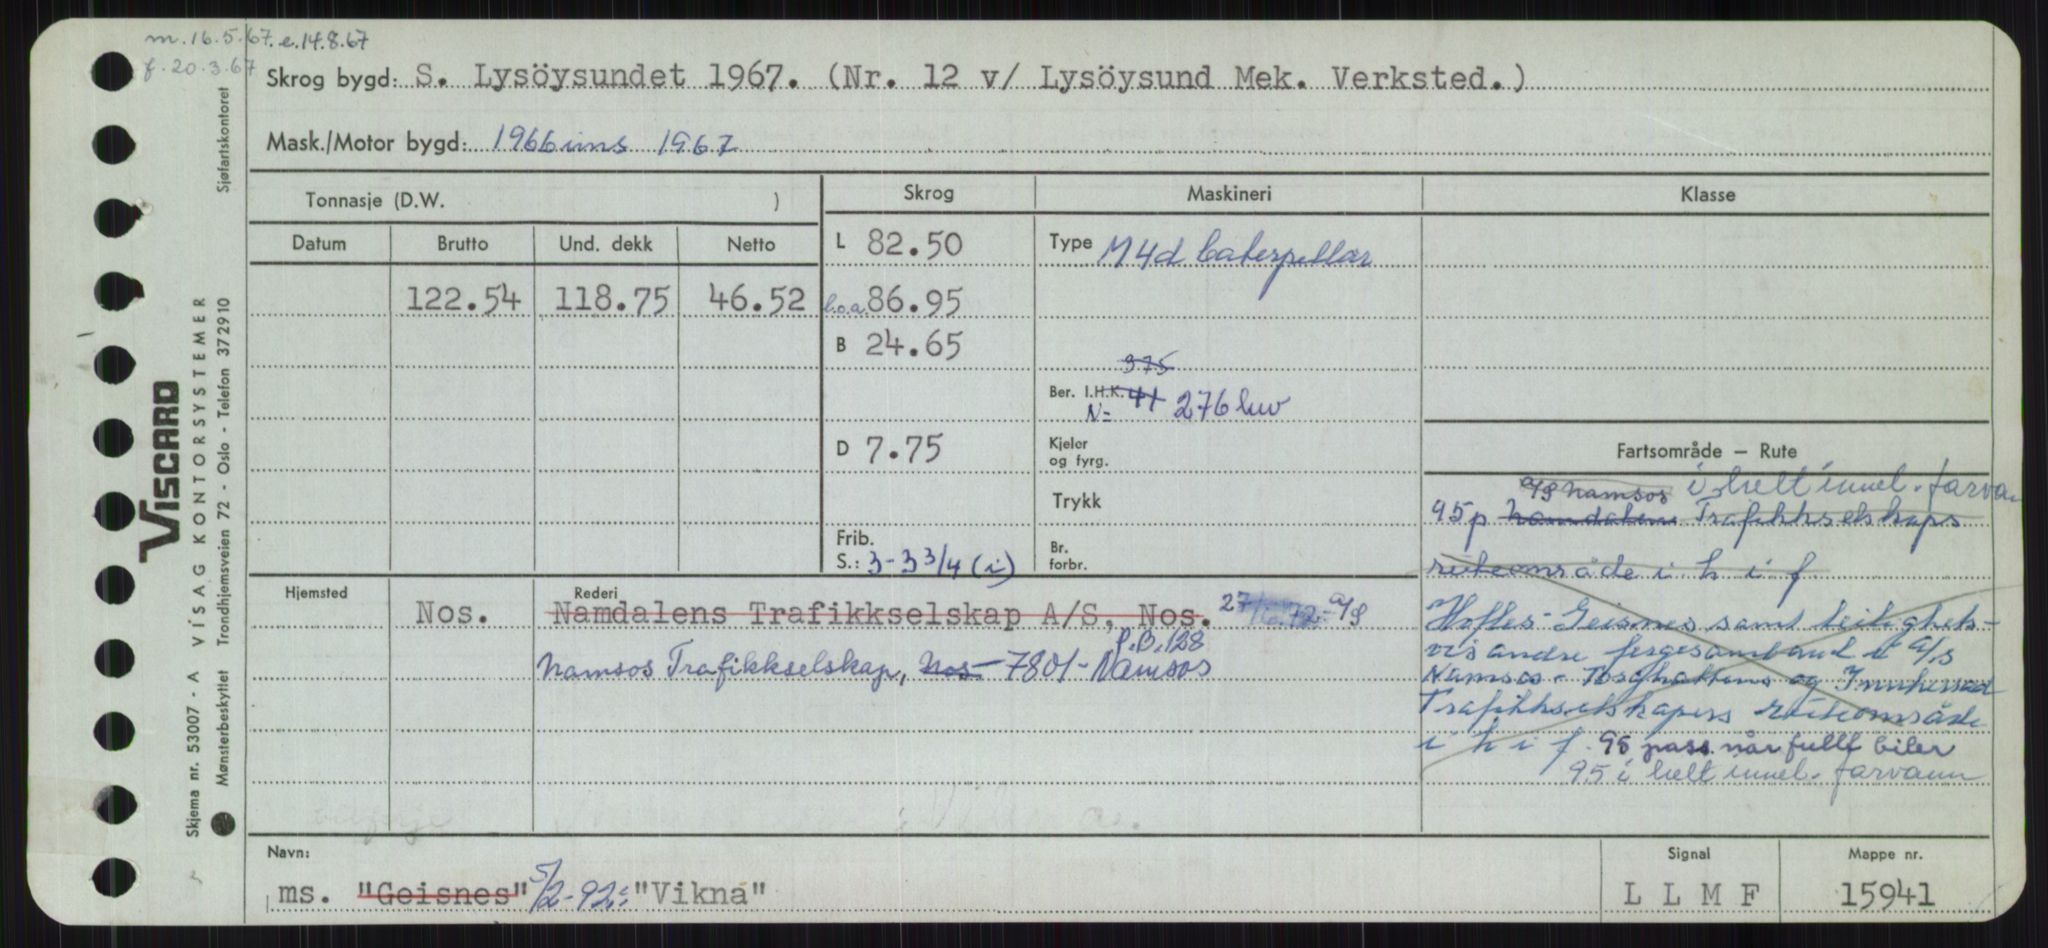 m. 16.5.67. e.14.8.67
f. 20.3.67
Skrog bygd: S. Lysöysundet 1967. (Nr. 12 v/ Lysöysund Mek. Verksted.)
Mask./Motor bygd: 1966 ins 1967
Tonnasje (D.W. )
Skrog
Maskineri
Klasse
Datum Brutto Und. dekk Netto
L 82.50
Type M4d Caterpillar
122.54 118.75 46.52
l.o.a. 86.95
B 24.65
375
Ber. I.H.K. 41 276 hw
N=
D 7.75
Kjeler
og fyrg.
Fartsområde – Rute
Trykk
a/s Namsos i helt innel. farvann
95 p Namdalens Trafikkselskaps
Frib.
S.: 3-3 3/4 (i)
Br.
forbr.
ruteområde i h i f
Hjemsted
Rederi
Nos. Namdalens Trafikkselskap A/S, Nos. 27/ 72 a/s
P.B. 128
Namsos Trafikkselskap, Nos 7801 - Namsos
Hofles - Geisnes samt leilighets-
vis andre fergesamband i a/s
Namsos - og Innherred
Trafikkselskapers ruteområde
i h i f. 95 pass når fullt biler
95 i helt innel. farvann
Navn:
ms. "Geisnes" 5/2-92: "Vikna"
Signal
L L M F
Mappe nr.
15941
VISCARD
VISAG KONTORSYSTEMER
Skjema nr. 53007 - A
Mønsterbeskyttet Trondhjemsveien 72 - Oslo - Telefon 372910
Sjøfartskontoret